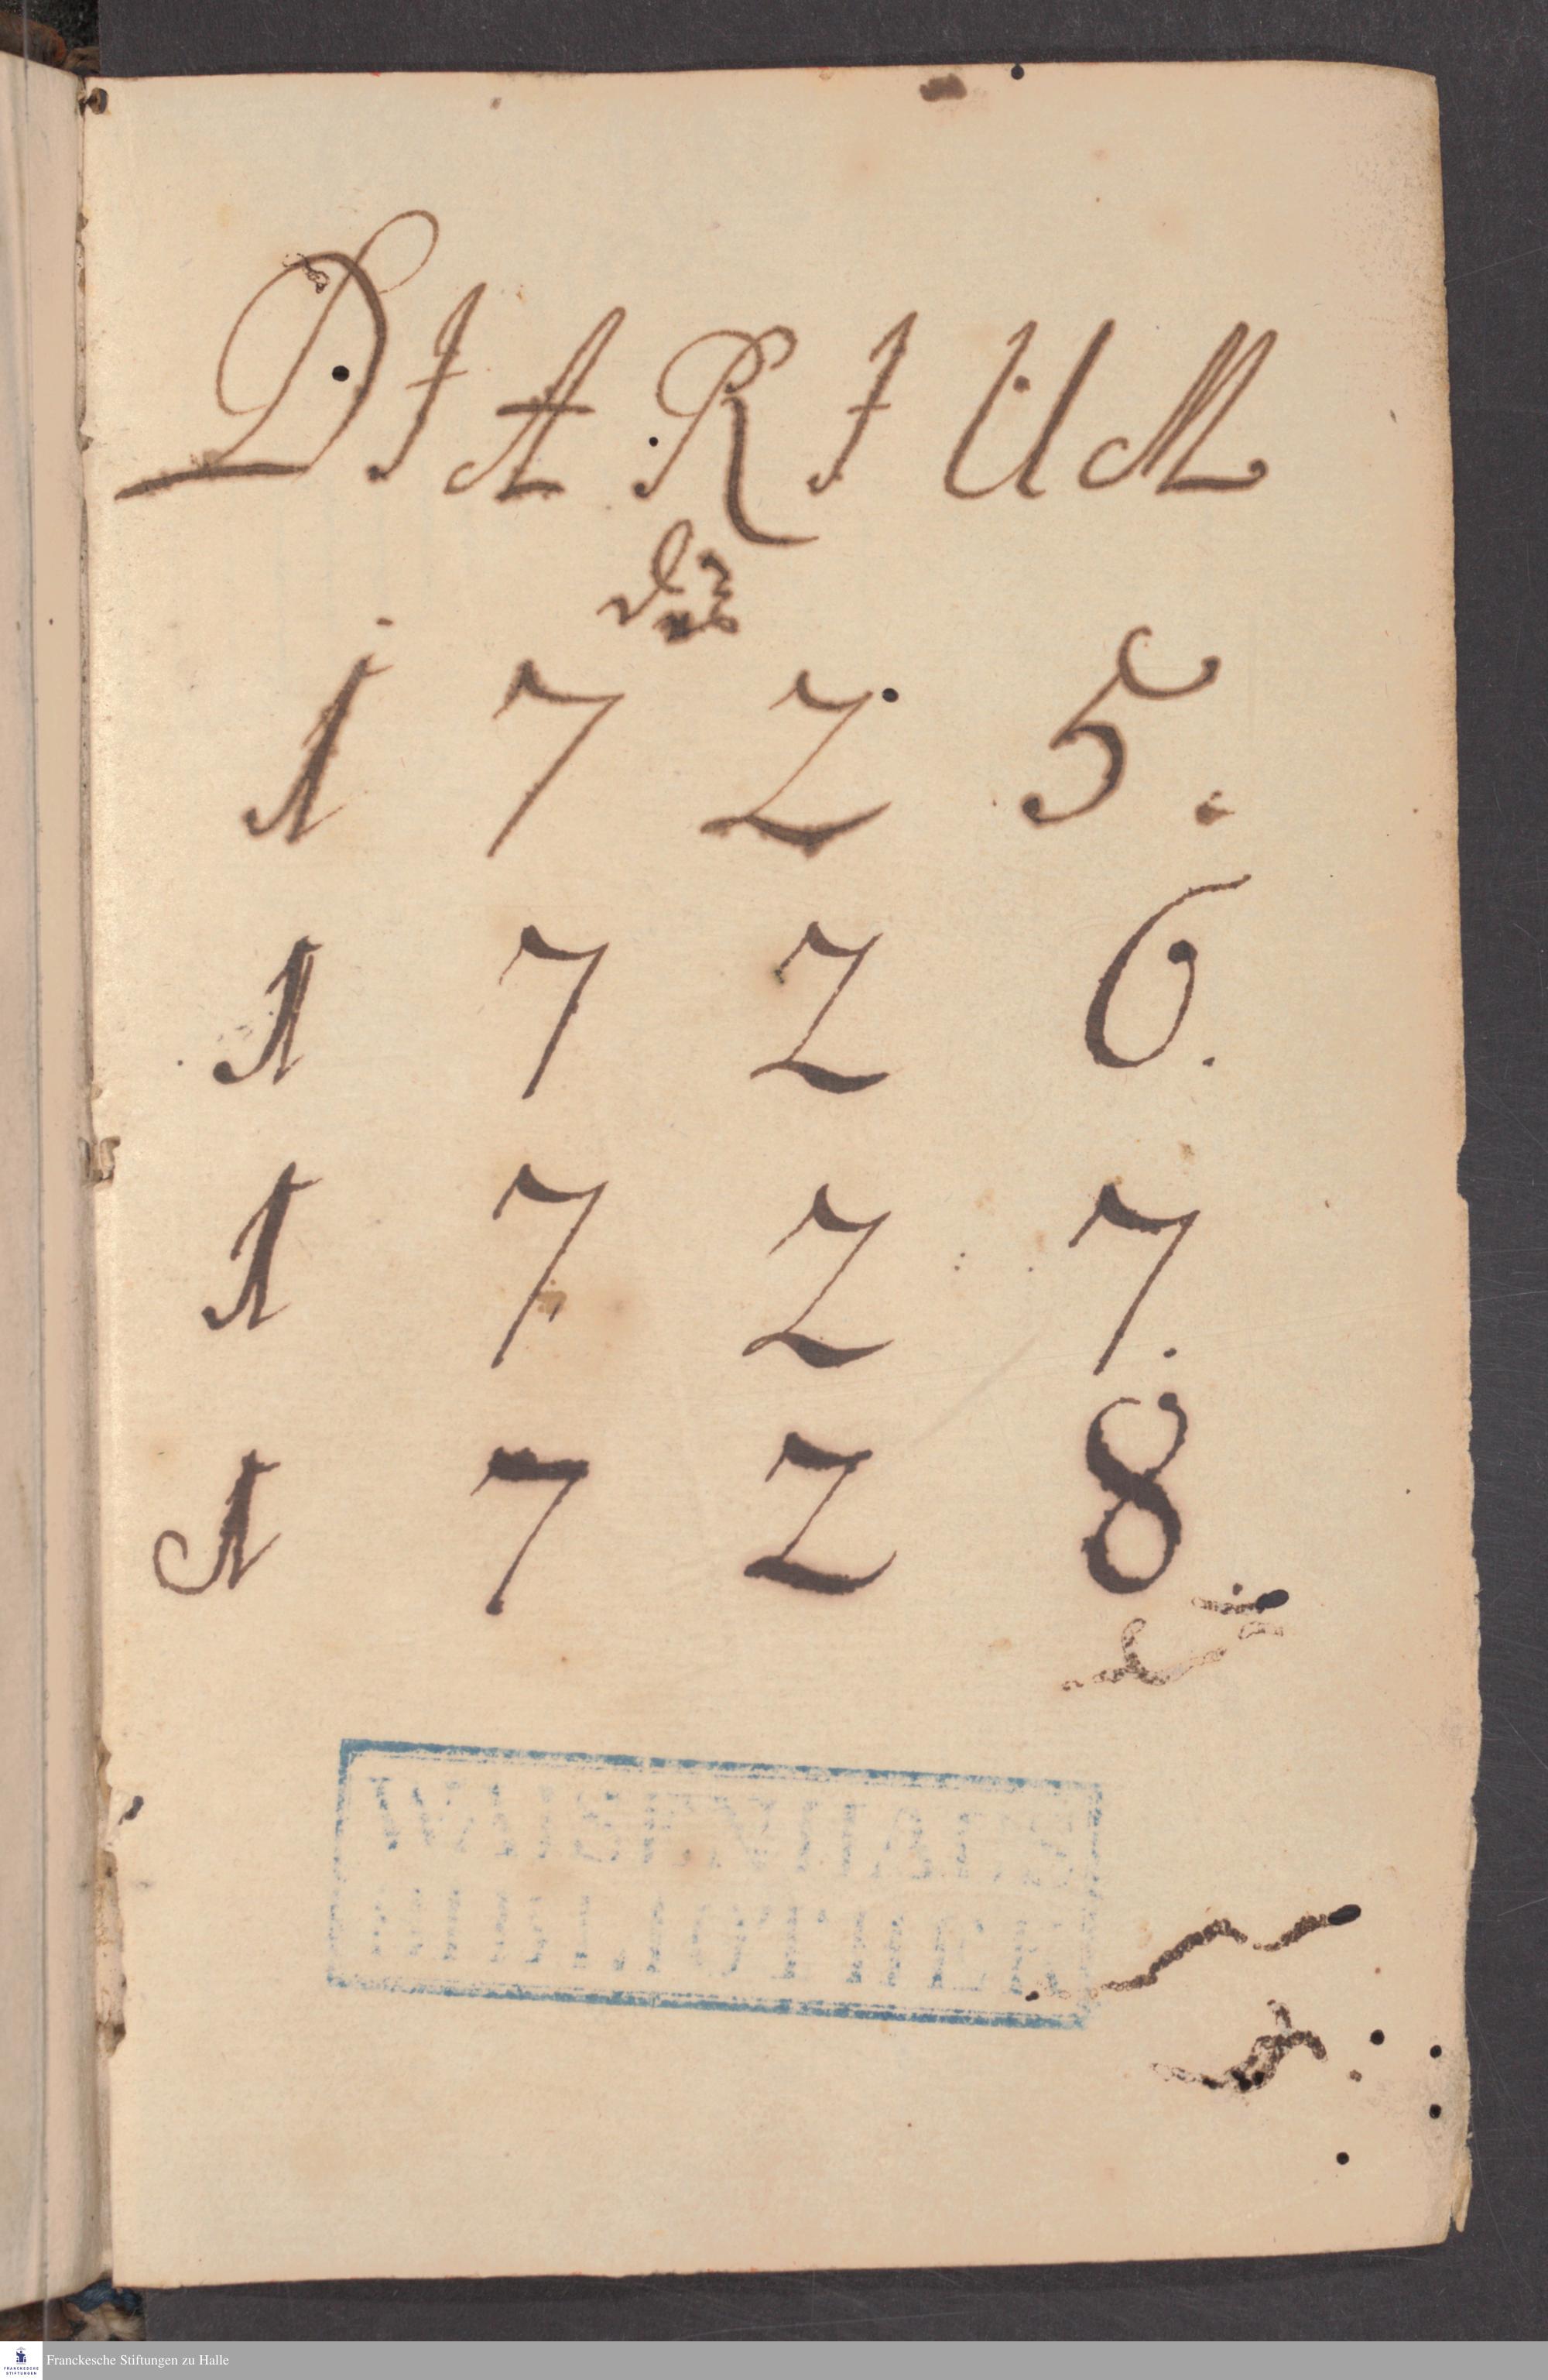 DIARIUM
1725.
1726.
1727.
1728
WAISENHAUS
BIBLIOTHEK
FRANCKESCHE
STIFTUNGEN
Franckesche Stiftungen zu Halle